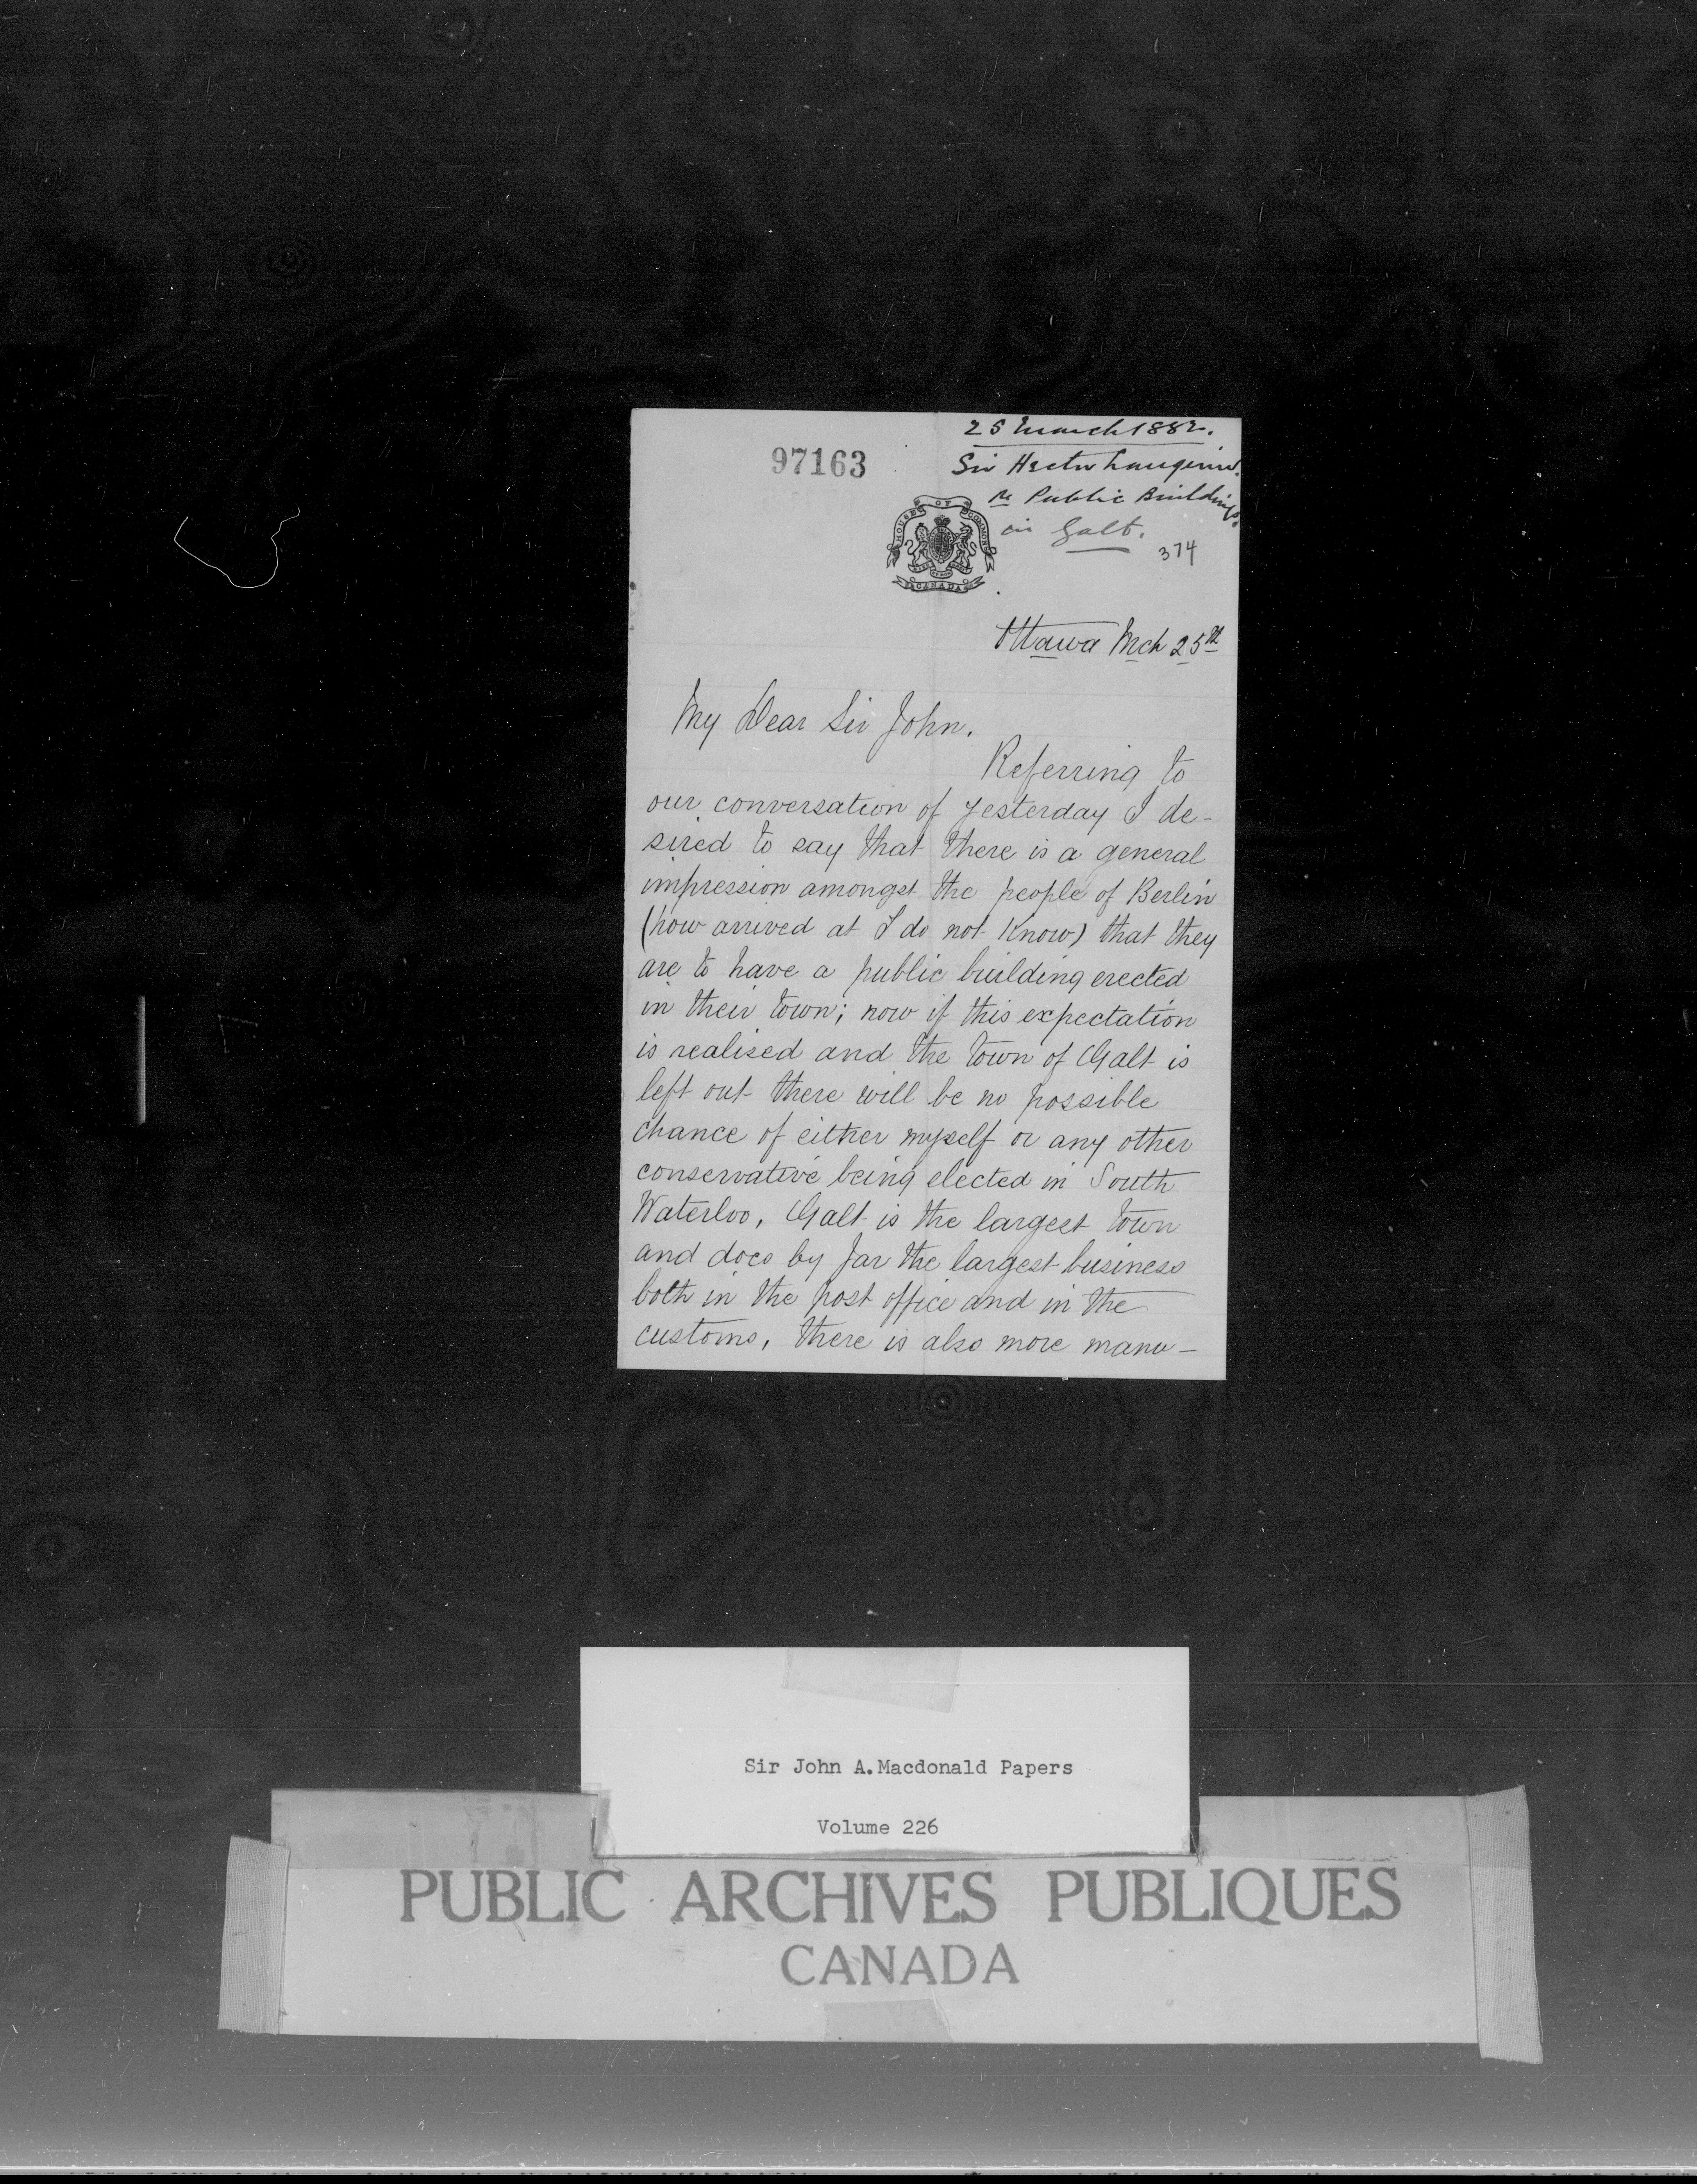 97163
25 March 1882.
Sir Hector Langevin.
re Public Buildings.
in Galt.
374
HOUSE OF COMMONS
CANADA
Ottawa Mch 25th
My Dear Sir John.
Referring to
our conversation of yesterday I de-
sired to say that there is a general
impression amongst the people of Berlin
(how arrived at I do not Know) that they
are to have a public building erected
in their town; now if this expectation
is realised and the town of Galt is
left out there will be no possible
chance of either myself or any other
conservative being elected in South
Waterloo. Galt is the largest town
and does by far the largest business
both in the post office and in the
customs, there is also more manu-
Sir John A.Macdonald Papers
Volume 226
PUBLIC ARCHIVES PUBLIQUES
CANADA